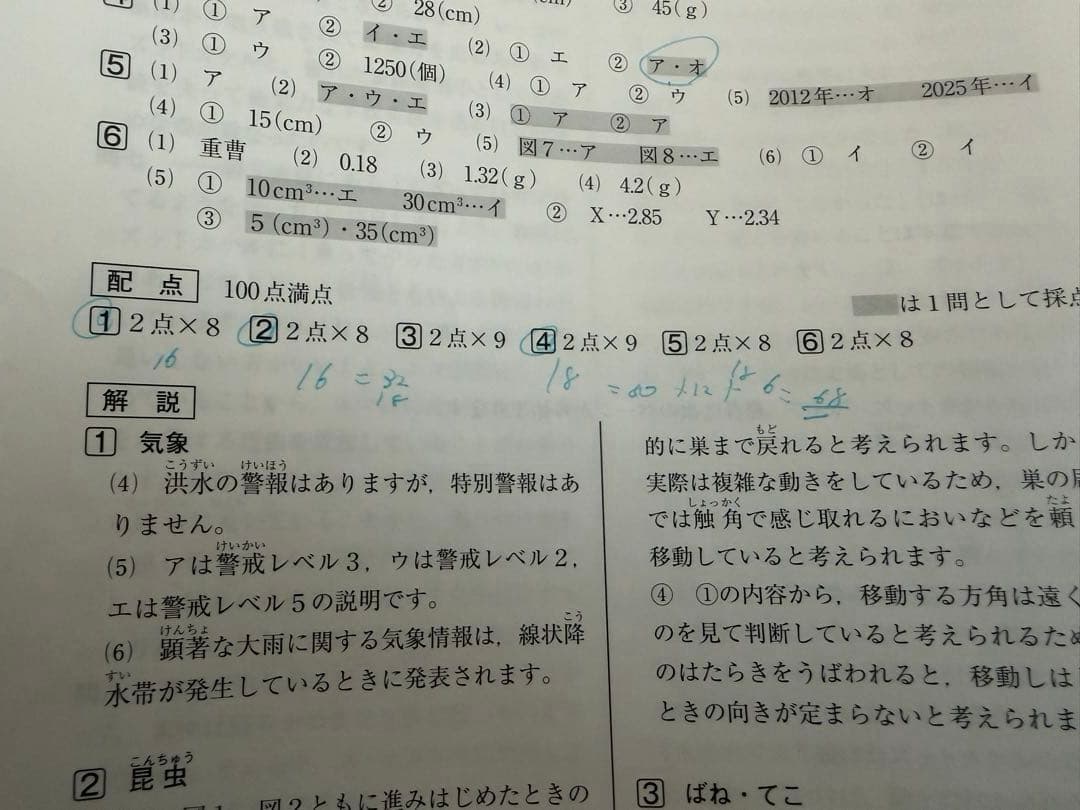 4 (1) ① ア ② 28(cm) ③ 45(g)
(3) ① ウ ② イ・エ (2) ① エ ② ア・オ
5 (1) ア (2) ② 1250(個) (4) ① ア ② ウ (5) 2012年…オ 2025年…イ
(4) ① 15(cm) ア・ウ・エ (3) ① ア ② ア
6 (1) 重曹 ② ウ (5) 図7…ア 図8…エ (6) ① イ ② イ
(2) 0.18 (3) 1.32(g) (4) 4.2(g)
(5) ① 10cm³…エ 30cm³…イ ② X…2.85 Y…2.34
③ 5(cm³)・35(cm³)
配点 100点満点
は1問として採点
1 2点×8 2 2点×8 3 2点×9 4 2点×9 5 2点×8 6 2点×8
16 16 =32 18 18
解説
1 気象
(4) 洪水の警報はありますが,特別警報はあ
りません。
(5) アは警戒レベル3,ウは警戒レベル2,
エは警戒レベル5の説明です。
(6) 顕著な大雨に関する気象情報は,線状降
水帯が発生しているときに発表されます。
2 昆虫
図2ともに進みはじめたときの
的に巣まで戻れると考えられます。しか
実際は複雑な動きをしているため,巣の周
では触角で感じ取れるにおいなどを頼
移動していると考えられます。
④ ①の内容から,移動する方角は遠く
のを見て判断していると考えられるため
のはたらきをうばわれると,移動しは
ときの向きが定まらないと考えられま
3 ばね・てこ